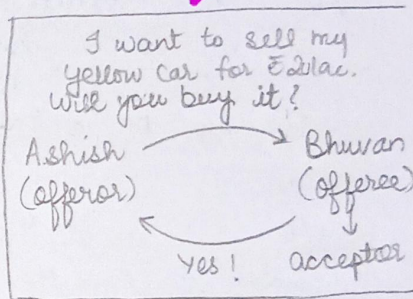 I want to sell my
yellow car for ₹2lac.
Will you buy it?
Ashish
(offeror)
Bhuvan
(offeree)
Yes!
acceptor